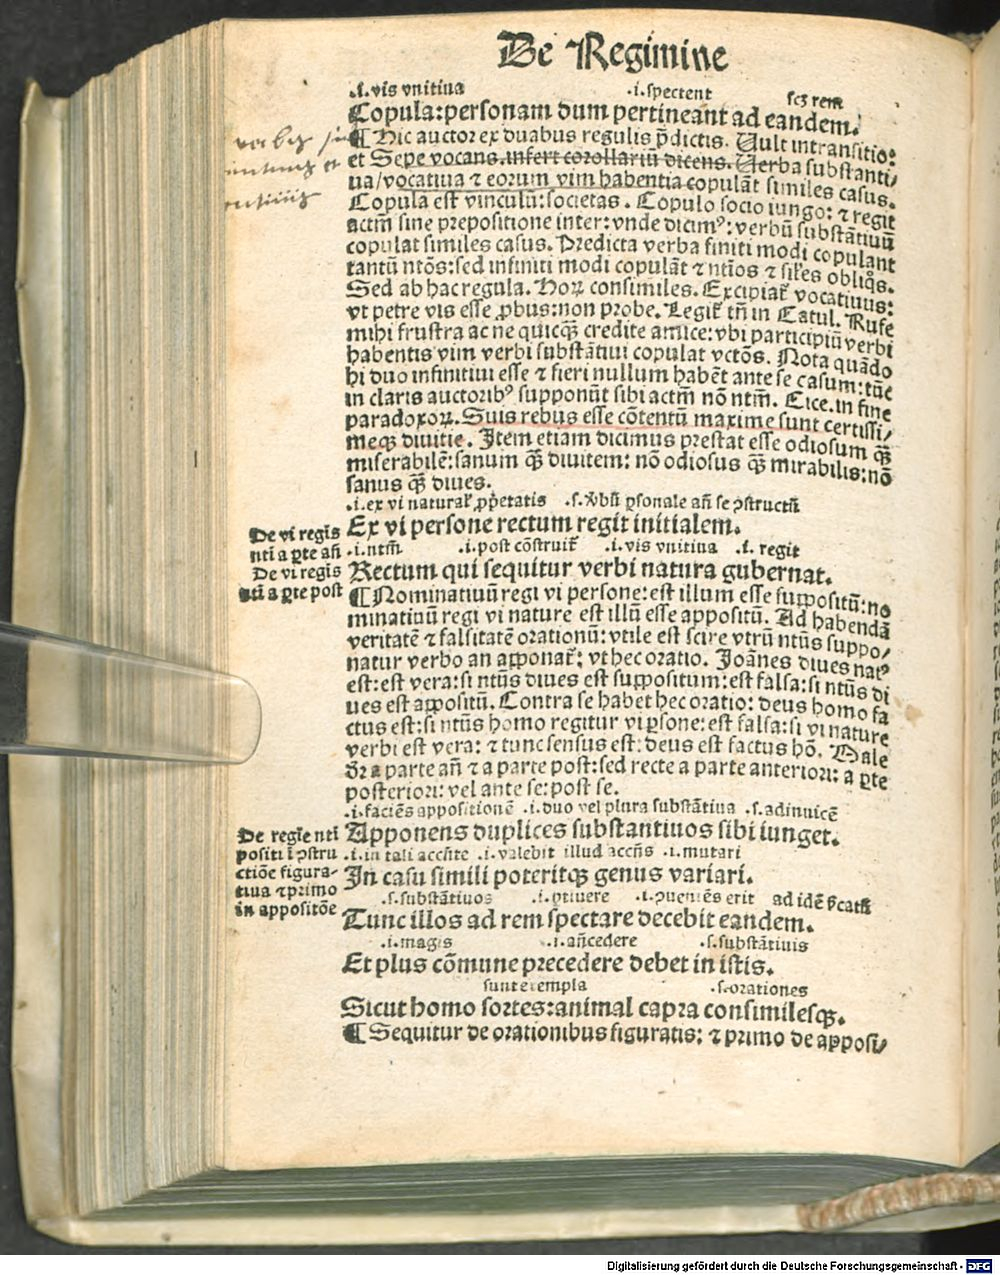 De Regimine
.i. vis vnitiua .i. spectent scꝫ rem
Copula: personam dum pertineant ad eandem.
¶ Hic auctor ex duabus regulis p̄dictis. Uult intransitio:
et Sepe vocans. infert corollariū dicens. Uerba substanti/
ua/vocatiua ⁊ eorum vim habentia copulāt similes casus.
Copula est vinculū: societas. Copulo socio iungo: ⁊ regit
actm̄ sine prepositione inter: vnde dicimꝰ: verbū substātiuū
copulat similes casus. Predicta verba finiti modi copulant
tantū ntōs: sed infiniti modi copulāt ⁊ ntīos ⁊ sil'es obliq̊s.
Sed ab hac regula. Hoꝝ consimiles. Excipiat᷑ vocatiuus:
vt petre vis esse ꝓbus: non probe. Legit᷑ tn̄ in Catul. Rufe
mihi frustra ac ne quicq̄ꝫ credite amice: vbi participiū verbi
habentis vim verbi substātiui copulat vctōs. Nota quādo
hi duo infinitiui esse ⁊ fieri nullum habēt ante se casum: tūc
in claris auctoribꝰ supponūt sibi actm̄ nō ntm̄. Cice. in fine
paradoxoꝝ. Suis rebus esse cōtentū maxime sunt certissi/
meqꝫ diuitie. Item etiam dicimus prestat esse odiosum q̄ꝫ
miserabilē: sanum q̄ꝫ diuitem: nō odiosus q̄ꝫ mirabilis: nō
sanus q̄ꝫ diues.
.i. ex vi natural' ꝓprietatis .s. v̄bū ꝑsonale añ se ꝯstructū
Ex vi persone rectum regit initialem.
De vi regīs
ntī a ꝑte añ
De vi regīs
ntī a ꝑte post
.i. ntm̄ .i. post cōstruit᷑ .i. vis vnitiua .i. regit
Rectum qui sequitur verbi natura gubernat.
¶ Nominatiuū regi vi persone: est illum esse suppositū: no
minatiuū regi vi nature est illū esse appositū. Ad habendā
veritatē ⁊ falsitatē orationū: vtile est scire vtrū ntūs suppo/
natur verbo an apponat᷑: vt hec oratio. Joānes diues natꝰ
est: est vera: si ntūs diues est suppositum: est falsa: si ntūs di
ues est appositū. Contra se habet hec oratio: deus homo fa
ctus est: si ntūs homo regitur vi ꝑsone: est falsa: si vi nature
verbi est vera: ⁊ tunc sensus est: deus est factus hō. Male
dr̄ a parte añ ⁊ a parte post: sed recte a parte anteriori: a ꝑte
posteriori: vel ante se: post se.
.i. faciēs appositionē .i. duo vel plura substātiua .s. adinuicē
Apponens duplices substantiuos sibi iunget.
De regīe ntī
positi ī ꝯstru
ctiōe figura-
tiua ⁊ primo
in appositōe
.i. in tali accn̄te .i. valebit illud accn̄s .i. mutari
In casu simili poteritqꝫ genus variari.
.s. substātiuos .i. ꝑtinere .i. ꝯueniēs erit ad idē
Tunc illos ad rem spectare decebit eandem.
.i. magis .i. an̄cedere .s. substātiuis
Et plus cōmune precedere debet in istis.
sunt exempla .s. orationes
Sicut homo sortes: animal capra consimilesqꝫ.
¶ Sequitur de orationibus figuratis: ⁊ primo de apposi/
Digitalisierung gefördert durch die Deutsche Forschungsgemeinschaft - DFG